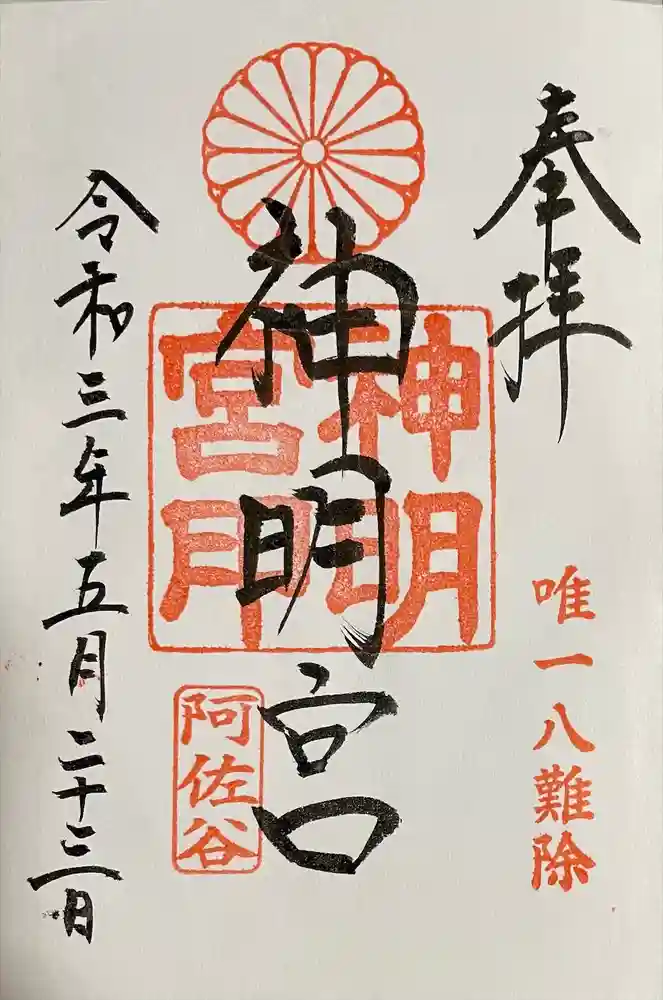 奉拝
唯一八難除
神明宮
神明
宮印
阿佐谷
令和三年五月二十三日